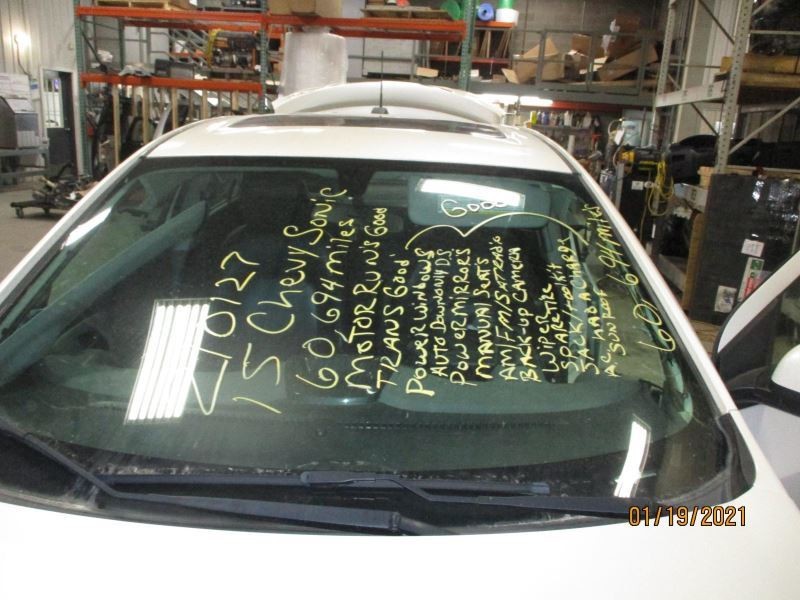 15 Chevy Sonic
60,694 miles
MOTOR RUNS Good
TRANS Good
Good
POWER WINDOWS
AUTO DOWN ONLY DS
POWER MIRRORS
MANUAL SEATS
AM/FM/SATRADIO
BACK-UP CAMERA
WIPER
SPARE TIRE KIT
JACK
AC SUNROOF
60,694 miles
01/19/2021